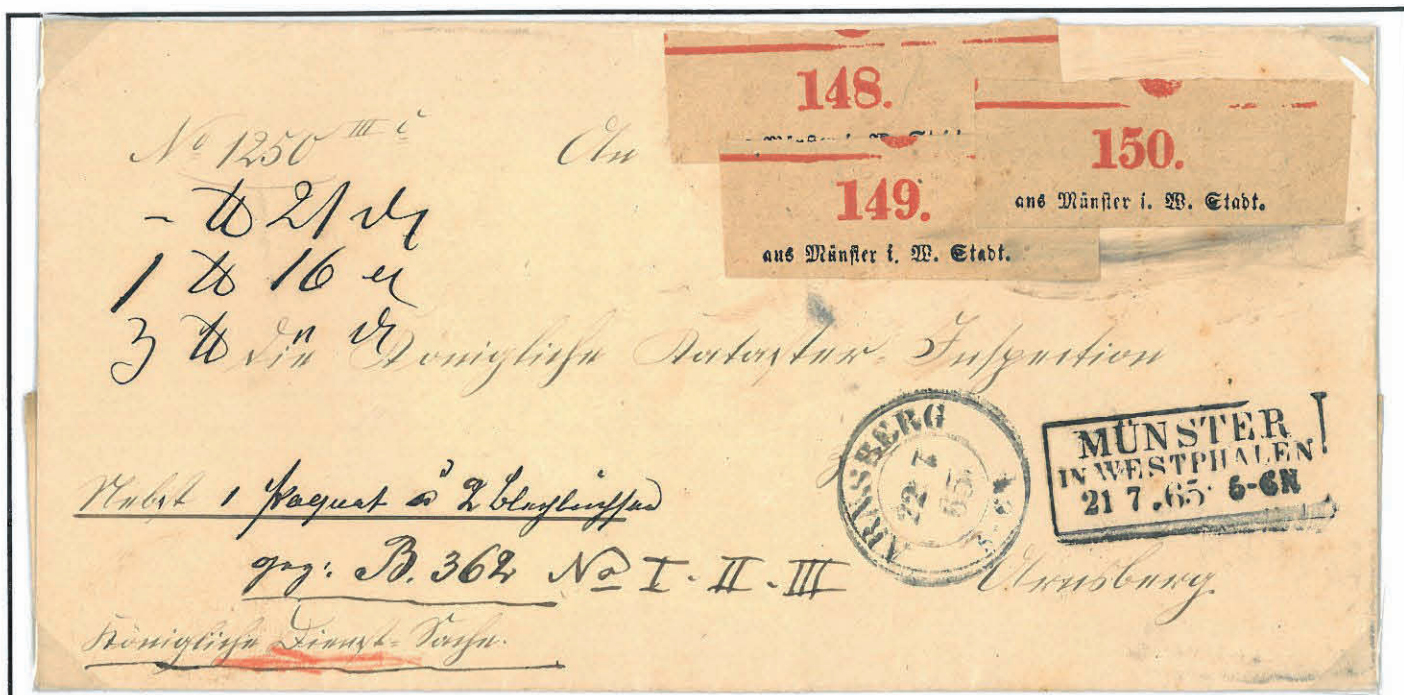 148.
150.
aus Münster i. W. Stadt.
149.
aus Münster i. W. Stadt.
No 1250 III
An
- ℔ 21
1 ℔ 16
3 ℔
die Königliche Kataster-Inspection
ARNSBERG
22 7
65
MÜNSTER
IN WESTPHALEN
21 7.65 5-6N
Nebst 1 Paquet u 2 Blechbüchsen
gez: B. 362 No I - II - III
Arnsberg
Königliche Dienst-Sache.